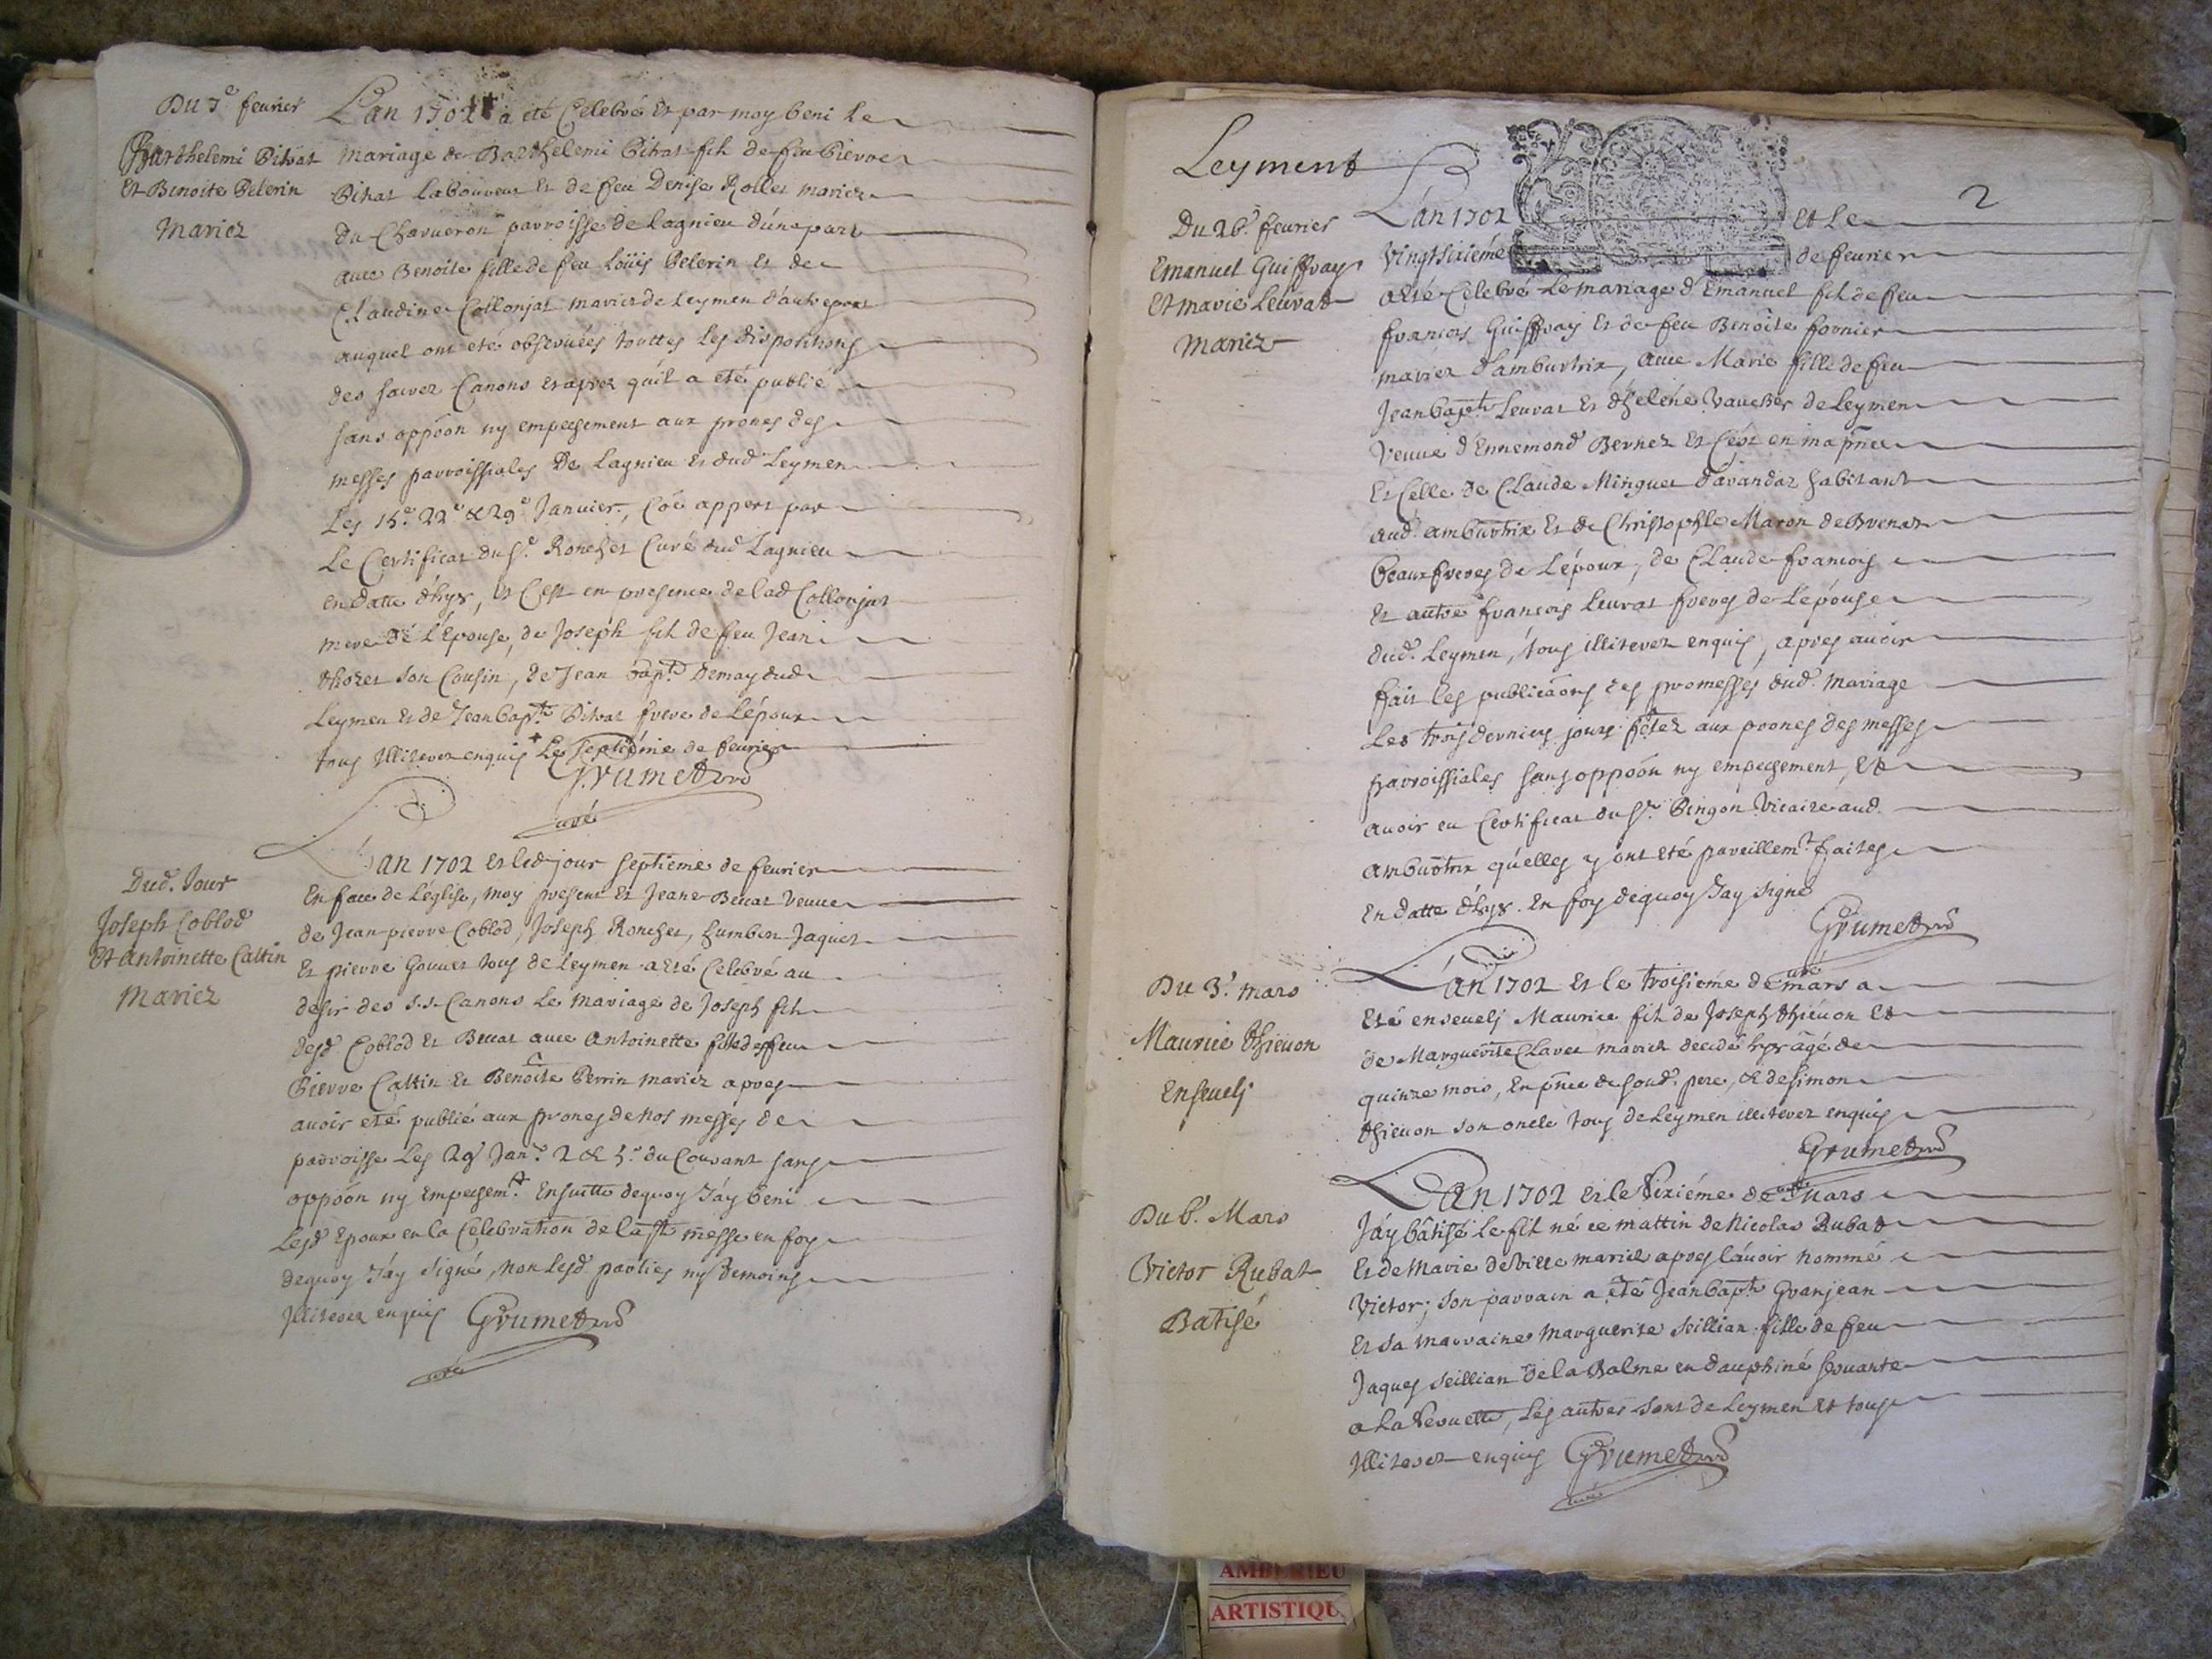 Du 7e feurier
Barthelemi Bitrat
Et Benoite Pelerin
Mariez
L'an 1702 + a eté Celebré Et par moy beni Le
Mariage de Barthelemi Bitrat fil de feu Pierre
Bitrat Laboureur Et de feu Denise Rollet mariez
du Charueron parroisse de Lagnieu d'une part
auec Benoite fille de feu Loüis Pelerin Et de
Claudine Collonjat mariez de Leymen d'autre part
auquel ont eté obseruées touttes Les dispositions
des sacrez Canons Et aprez qu'il a eté publié
sans oppoôn ny empechement aux prones des
messes parroissiales De Lagnieu Et dud Leymen
Les 15e 22e & 29e Januier, Coê appert par
Le Certificat du Sr Ronchet Curé dud Lagnieu
en datte d'hyer, Et C'est en presence de lad Collonjat
mere de L'Epouse, de Joseph fil de feu Jean
thozet son Cousin, de Jean bapte Demay dud
Leymen Et de Jean bapte Bitrat frere de L'époux
tous Illiterez enquis + Le septiéme de feurier
Grumet
curé
Dud. Jour
Joseph Coblod
Et Antoinette Cattin
Mariez
L'an 1702 Et led jour septieme de feurier
En face de L'église, moy present Et Jeane Beuat veuue
de Jean pierre Coblod, Joseph Ronchet, humbert Jaquet
Et pierre Gouuet tous de Leymen a eté Celebré au
desir des S.S. Canons Le mariage de Joseph fil
desd Coblod Et Beuat auec Antoinette fille de feu
Pierre Cattin Et Benoite Perrin mariez apres
auoir eté publié aux prones de nos messes de
parroisse Les 29 Janr 2 & 5e du Courant sans
oppoôn ny Empechemt Ensuitte dequoy J'ay beni
Lesd Epoux en la Celebration de la ste messe en foy
dequoy J'ay signé, non Lesd parties ny temoins
Illiterez enquis Grumet
curé
Leyment
2
Du 26e feurier
Emanuel Guiffray
Et Marie Leurat
Mariez
L'an 1702 Et Le
Vingtsixiéme de feurier
a Eté Celebré Le mariage d'Emanuel fil de feu
francois Guiffray Et de feu Benoite fornier
mariez d'ambutrix, auec Marie fille de feu
Jean bapte Leurat Et d'heléne Vaucher de Leymen
Veuue d'Ennemond Bernet Et C'est en ma pnce
Et Celle de Claude Minguet d'auandaz habitant
aud. ambutrix Et de Christophle Maron de Brenaz
beauxfreres de L'époux, de Claude francois
Et autre francois Leurat freres de L'epouse
dud. Leymen, tous illiterez enquis, apres auoir
fait les publicâons des promesses dud. mariage
Les trois derniers jours fêtez aux prones des messes
parroissiales sans oppoôn ny empechement, Et
auoir eu Certificat du Sr. Bingon Vicaire aud.
ambutrix qu'elles y ont eté pareillemt faites
En datte d'hyer. En foy dequoy J'ay signé
Grumet
curé
Du 3e. mars
Maurice thieuon
Enseueli
L'an 1702 Et le troisiéme de mars a
Eté enseueli Maurice fil de Joseph thieuon Et
de Marguerite Clauet mariez decedé hyer âgé de
quinze mois, En pnce de soud. pere, & de simon
thieuon son oncle tous de Leymen illiterez enquis
Grumet
curé
Du 6e. Mars
Victor Rubat
Batisé
L'an 1702 Et le sixiéme de Mars
J'ay bâtisé Le fil né ce mattin de Nicolas Rubat
Et de Marie Deville mariez apres l'auoir nommé
Victor; son parrain a eté Jean bapte Granjean
Et sa marraine Marguerite seillian fille de feu
Jaques seillian de la Balme en Dauphiné seruante
a La Seruette, Les autres sont de Leymen Et tous
Illiterez enquis Grumet
curé
AMBERIEU
ARTISTIQU